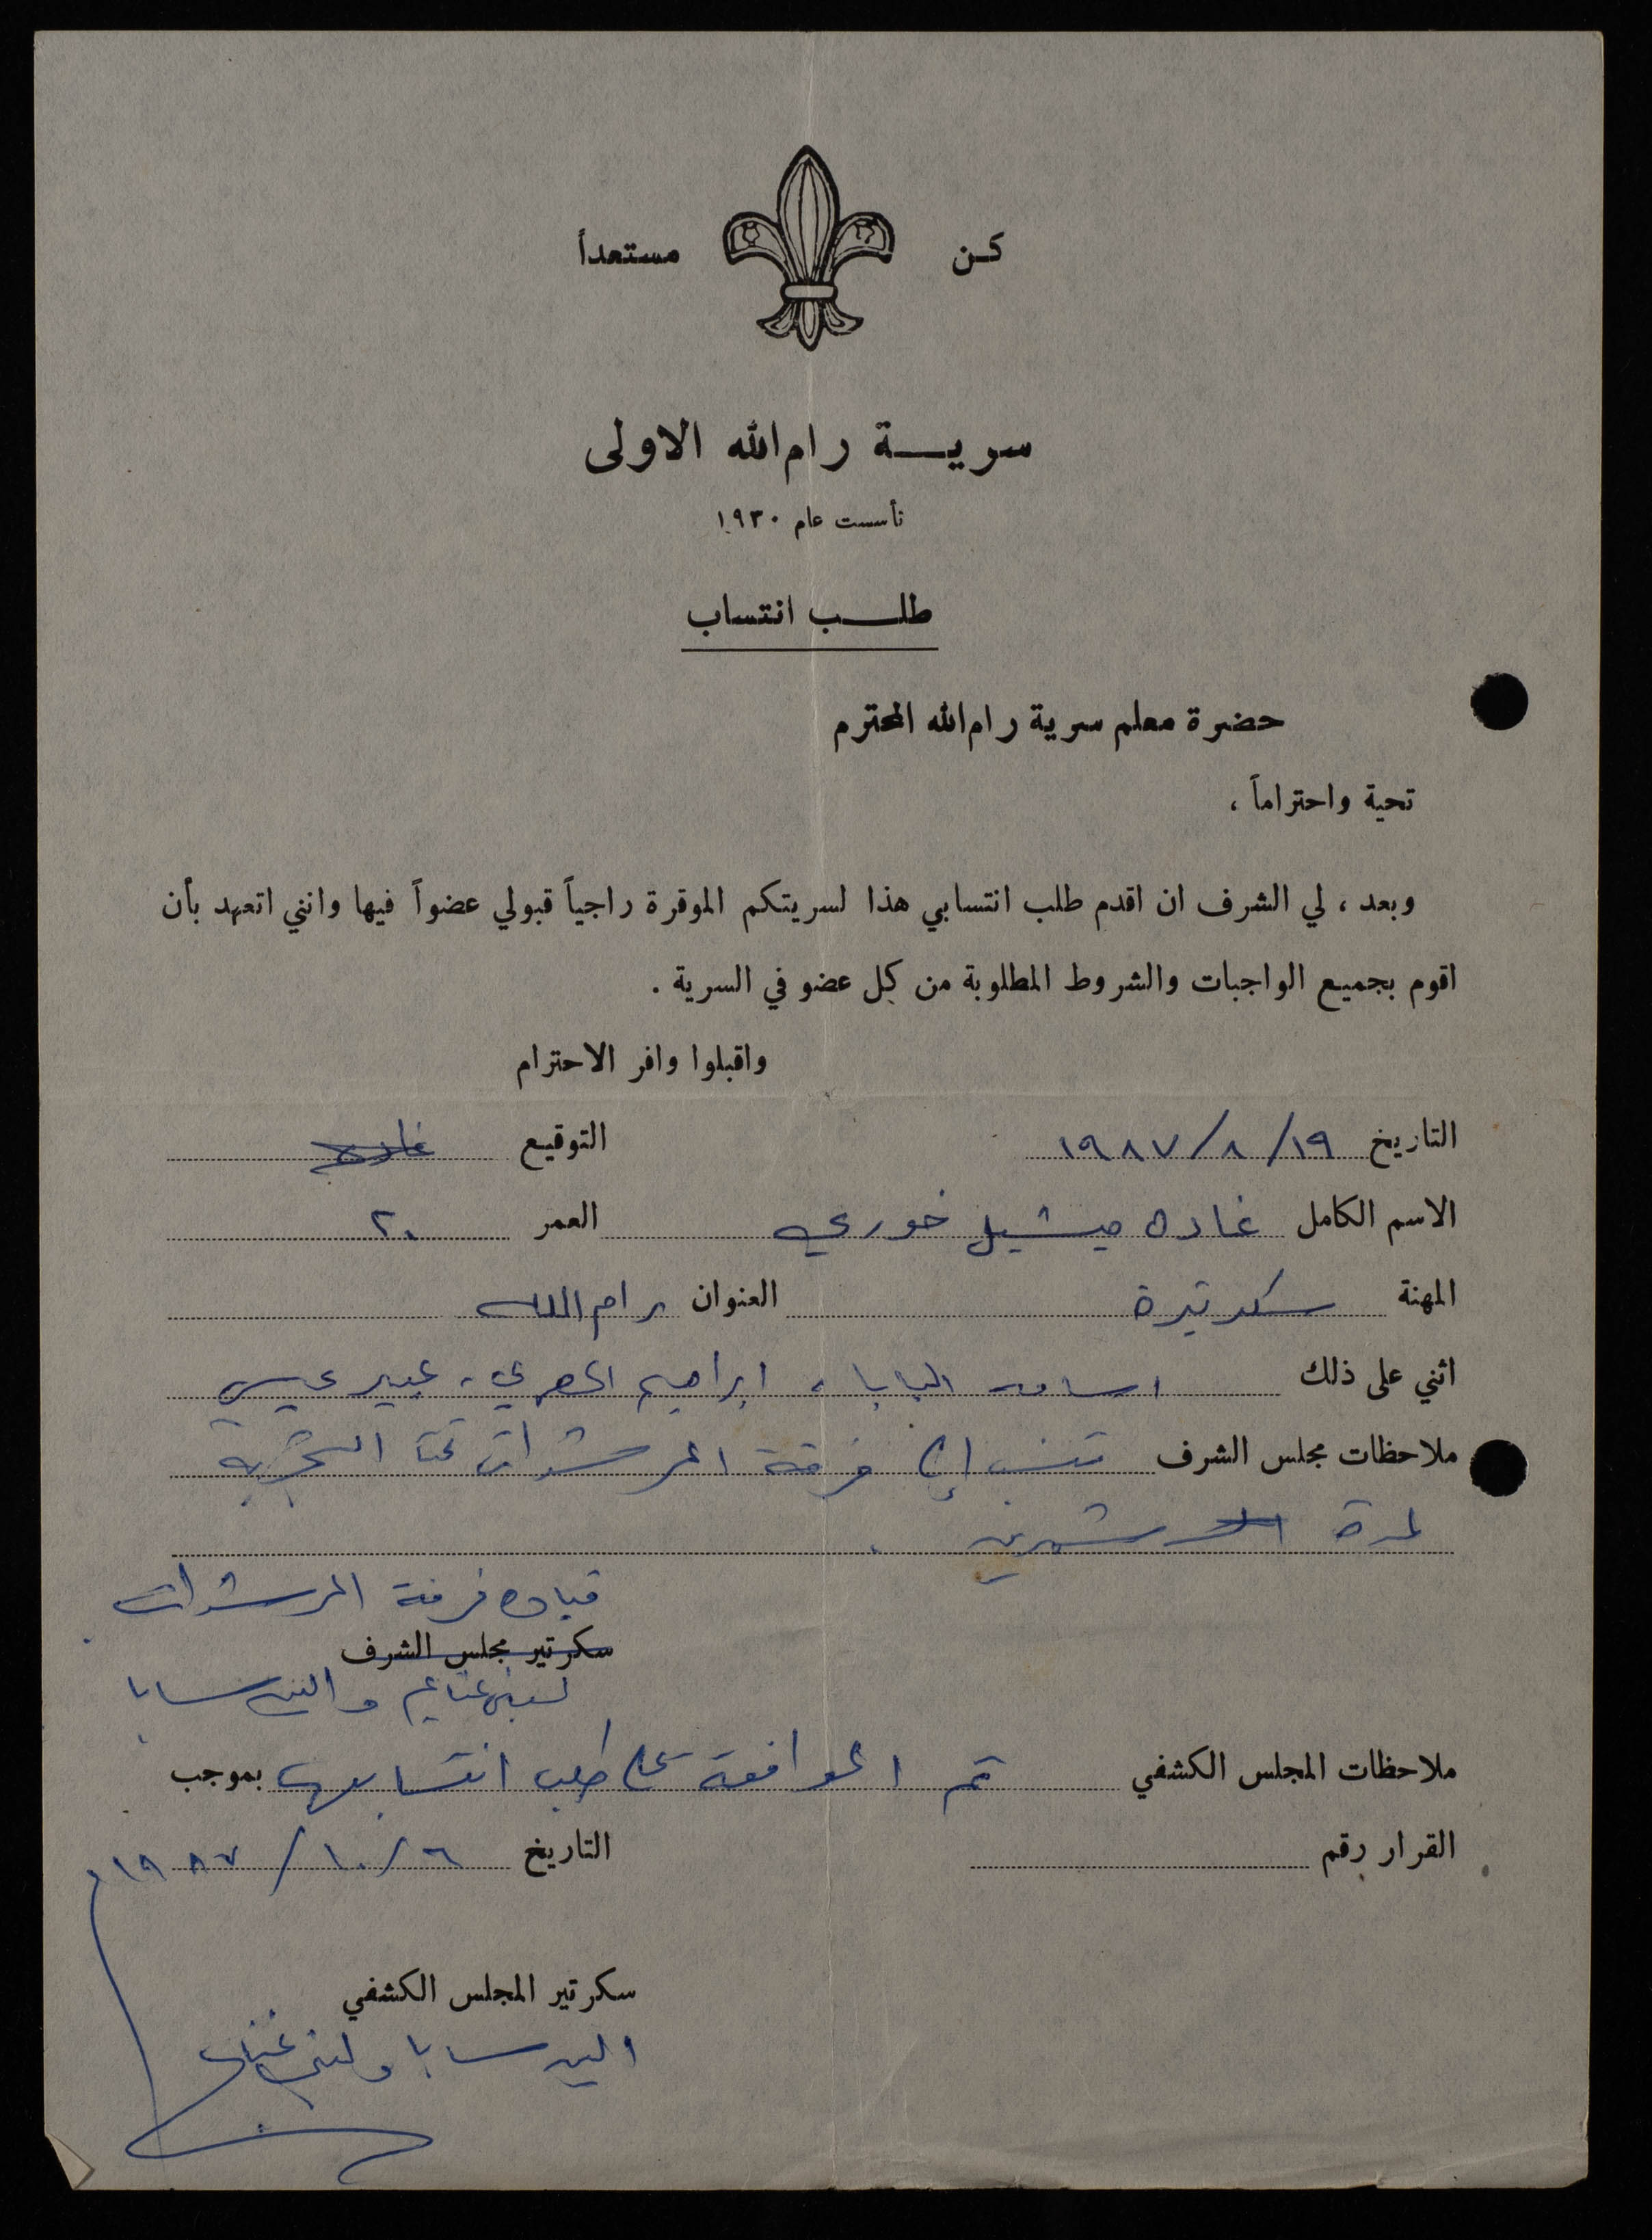 كن مستعداً
سرية رام الله الاولى
تأسست عام ١٩٣٠
طلب انتساب
حضرة معلم سرية رام الله المحترم
تحية واحتراماً ،
وبعد ، لي الشرف ان اقدم طلب انتسابي هذا لسريتكم الموقرة راجياً قبولي عضواً فيها وانني اتعهد بأن
اقوم بجميع الواجبات والشروط المطلوبة من كل عضو في السرية .
واقبلوا وافر الاحترام
التاريخ ١٩/٨/١٩٨٧ التوقيع غاده
الاسم الكامل غاده ميشيل خوري العمر ٢٠
المهنة سكرتيرة العنوان رام الله
اثني على ذلك اسامه البابا ، ابراهيم ، عبير عيسى
ملاحظات مجلس الشرف تنسب إلى فرقة المرشدات تحت التجربة
لمدة شهرين .
قياده فرقة المرشدات
سكرتير مجلس الشرف
لبنى غنايم و الين سابا
ملاحظات المجلس الكشفي تم الموافقة على طلب انتسابها بموجب
القرار رقم التاريخ ٦/١٠/١٩٨٧م
سكرتير المجلس الكشفي
الين سابا و لبنى